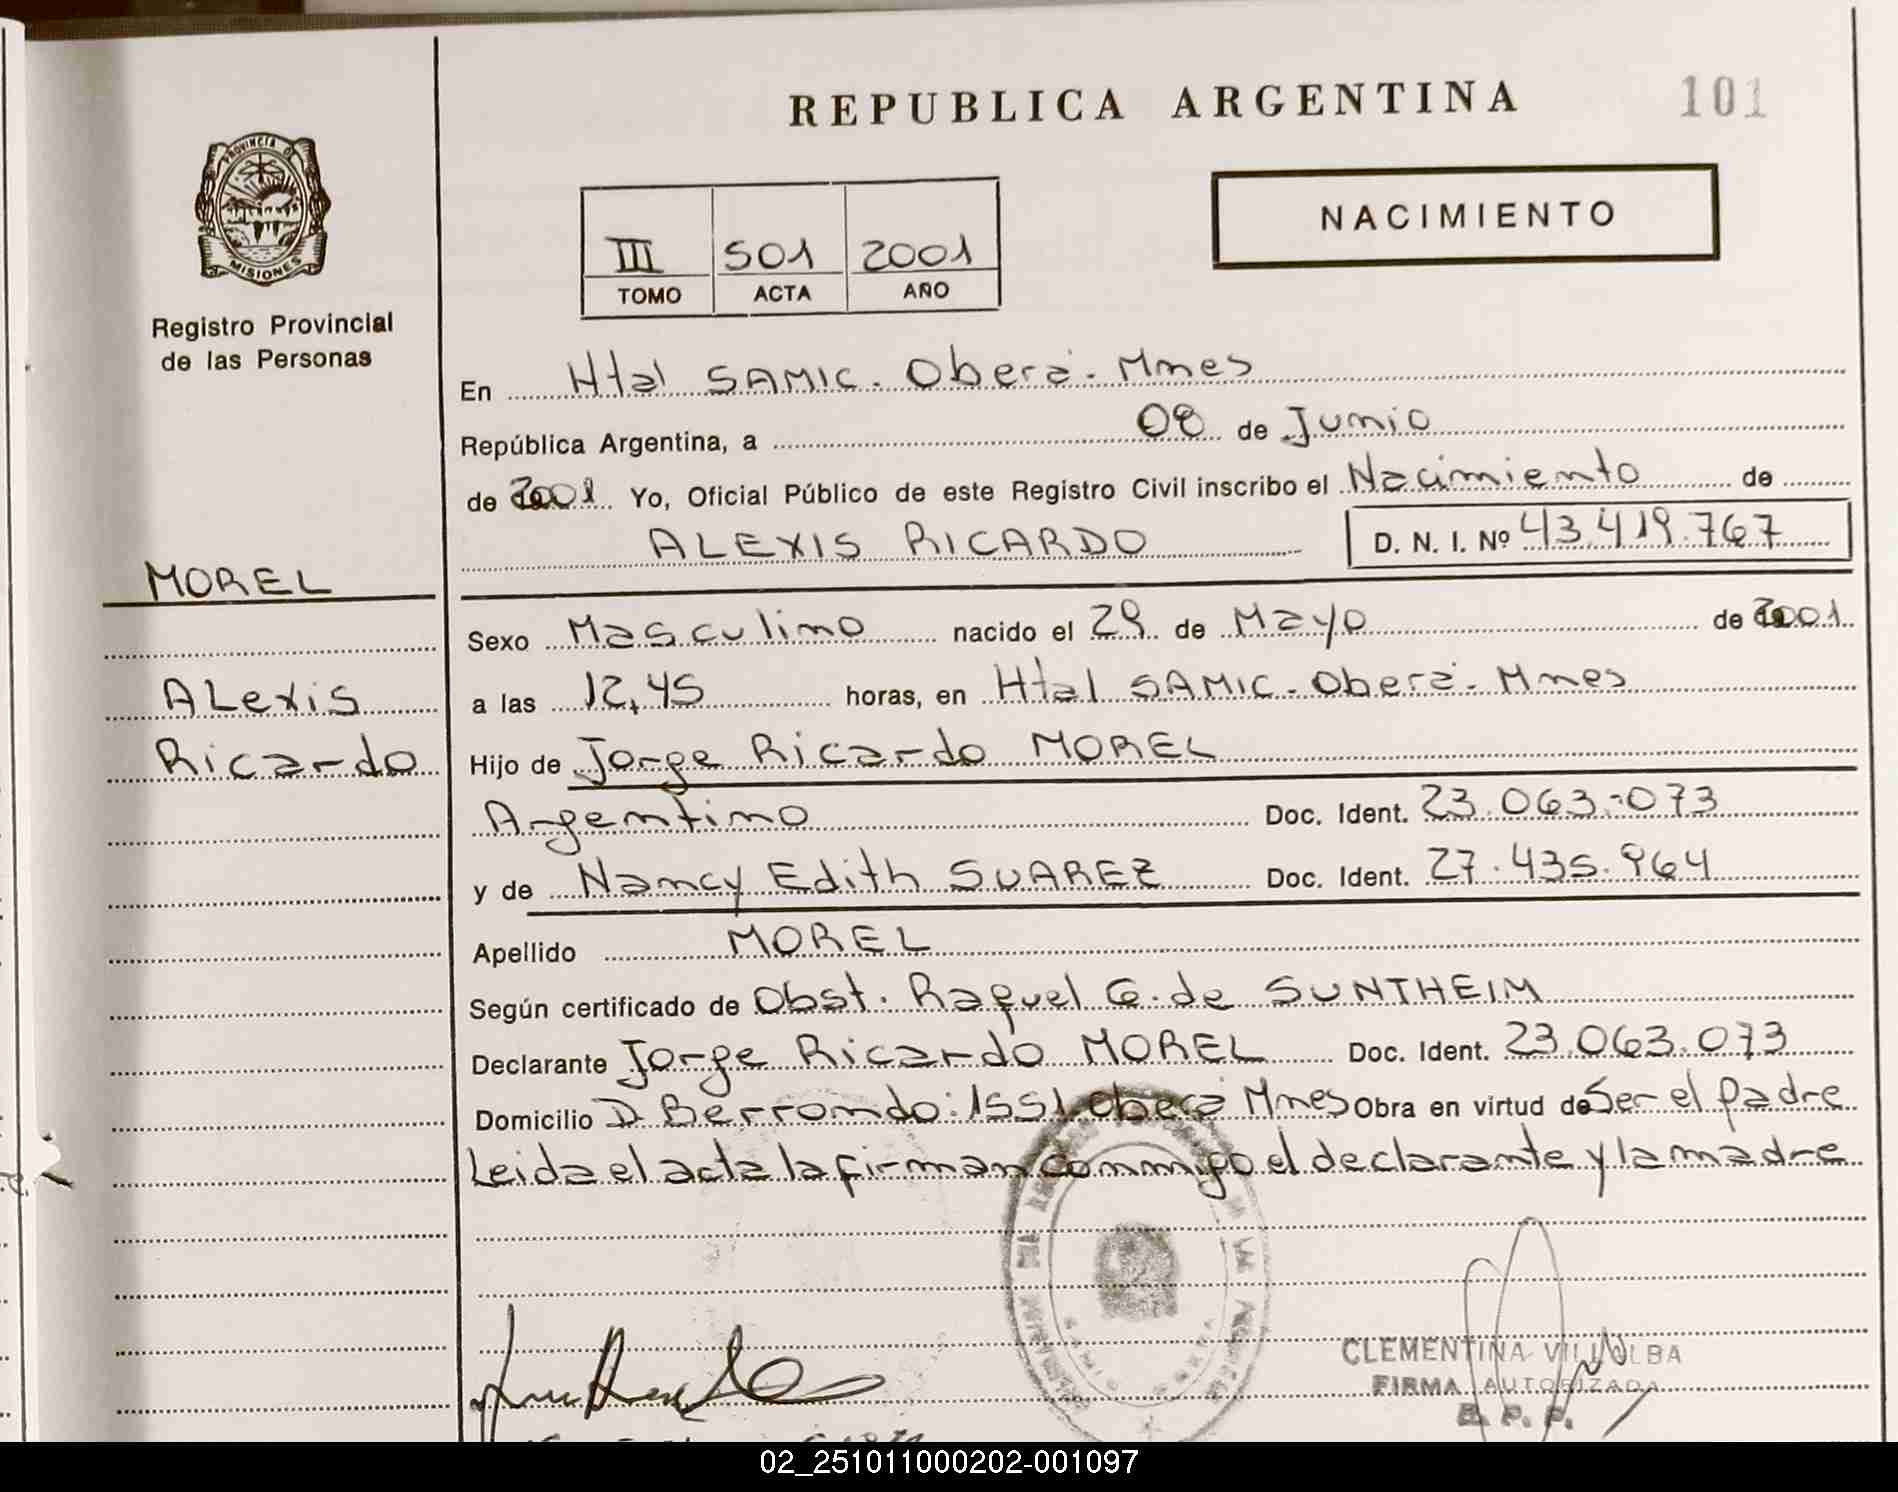 REPUBLICA ARGENTINA
101
PROVINCIA DE
MISIONES
Registro Provincial
de las Personas
NACIMIENTO
III 501 2001
TOMO ACTA AÑO
En Htal SAMIC. Oberá. Mnes
República Argentina, a 08 de Junio
de 2001 Yo, Oficial Público de este Registro Civil inscribo el Nacimiento de
ALEXIS RICARDO D. N. I. Nº 43.419.767
MOREL
Alexis
Ricardo
Sexo Masculino nacido el 29 de Mayo de 2001
a las 12,45 horas, en Htal SAMIC. Oberá. Mnes
Hijo de Jorge Ricardo MOREL
Argentino Doc. Ident. 23.063.073
y de Nancy Edith SUAREZ Doc. Ident. 27.435.964
Apellido MOREL
Según certificado de Obst. Raquel G. de SUNTHEIM
Declarante Jorge Ricardo MOREL Doc. Ident. 23.063.073
Domicilio D Berrondo: 1551 Oberá Mnes Obra en virtud de Ser el padre
Leida el acta la firman conmigo el declarante y la madre
CLEMENTINA VILLALBA
FIRMA AUTORIZADA
R. P. P.
02_251011000202-001097